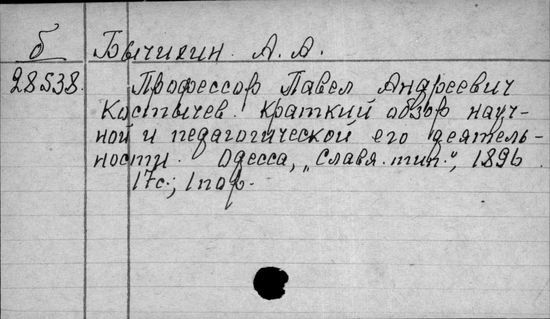 б Бычихин А. А.
28538. Профессор Павел Андреевич
Костычев. Краткий обзор науч-
ной и педагогической его деятель-
ности. Одесса, „Славя. тип.", 1896
17с.; 1 пор.